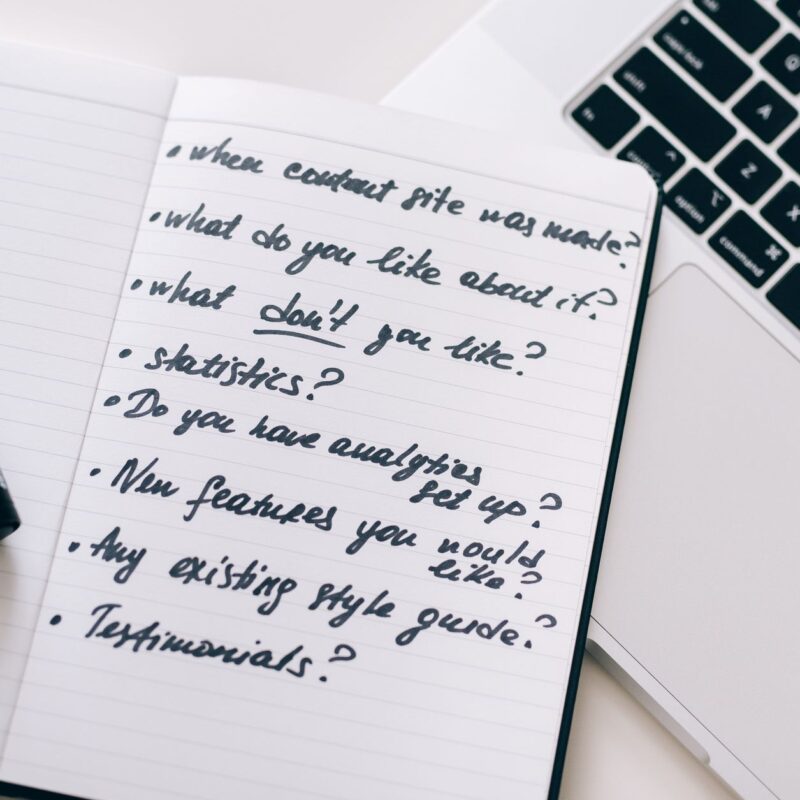 • when content site was made?
• what do you like about it?
• what don't you like?
• statistics?
• Do you have analytics
set up?
• New features you would
like?
• Any existing style guide?
• Testimonials?
Q
caps lock
A
shift
Z
X
fn
control
option
command